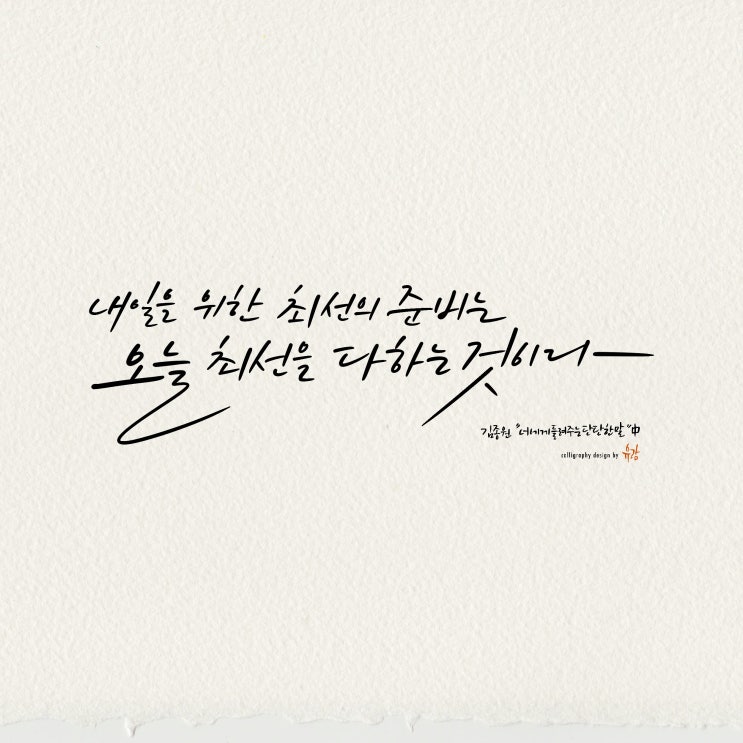 내일을 위한 최선의 준비는
오늘 최선을 다하는 것이다
김종원 "너에게 들려주는 단단한 말" 中
calligraphy design by 유강